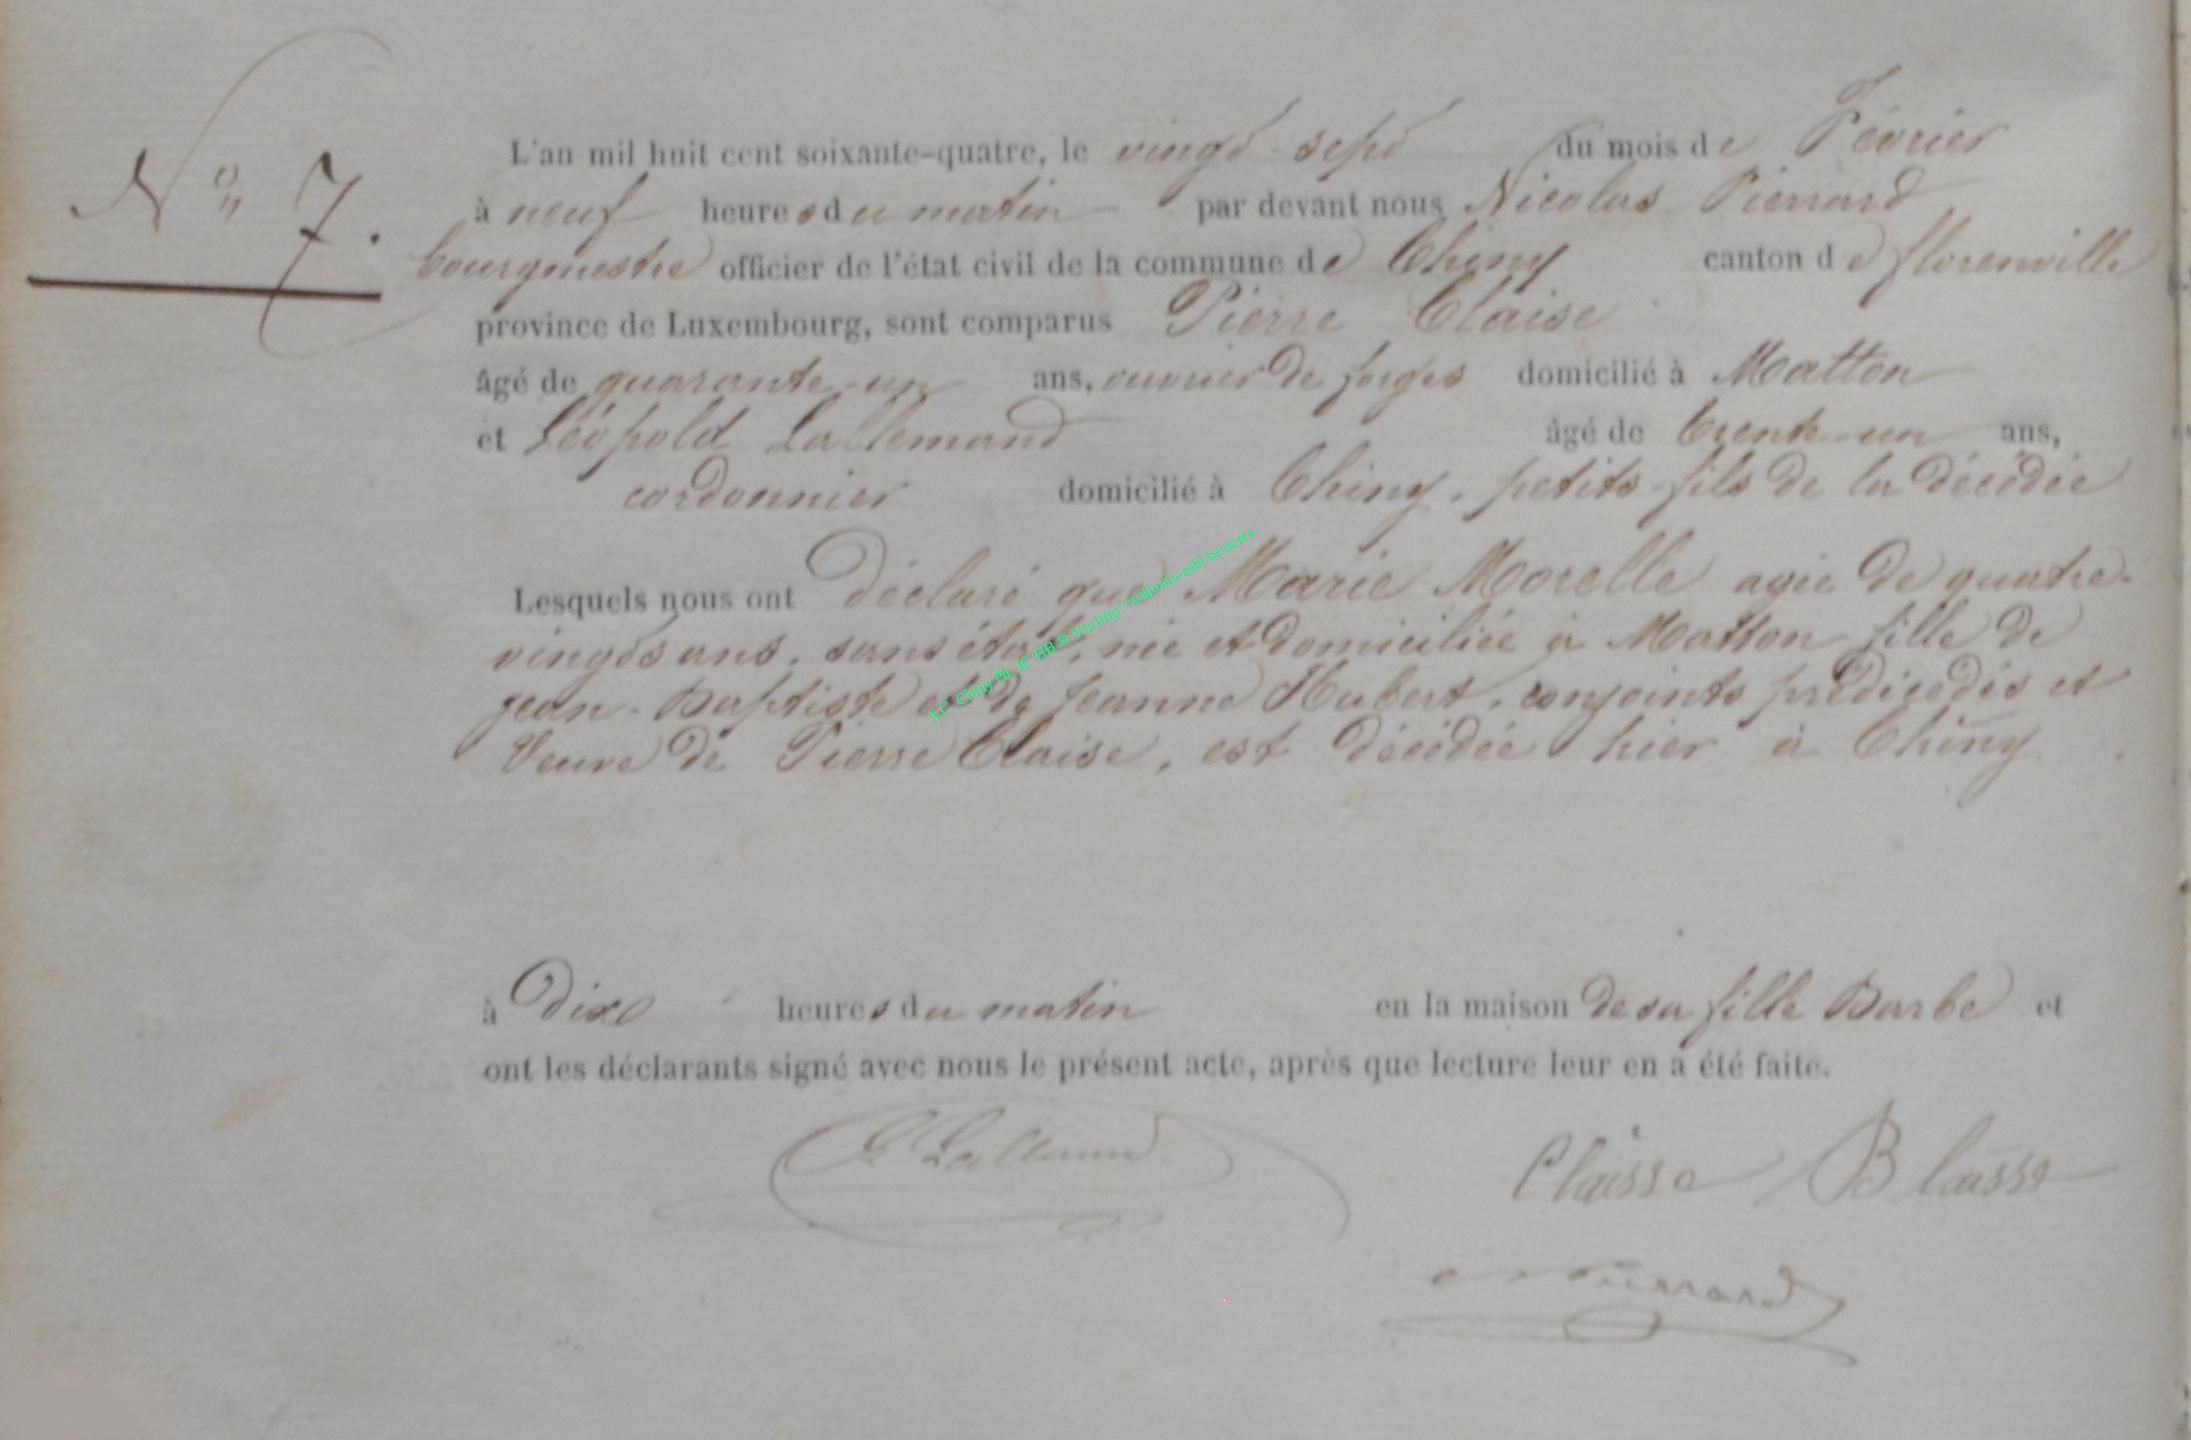 N° 7.
L'an mil huit cent soixante-quatre, le vingt-sept du mois de Février
à neuf heures du matin par devant nous Nicolas Pierrard
bourgmestre officier de l'état civil de la commune de Chiny canton de florenville
province de Luxembourg, sont comparus Pierre Claise
âgé de quarante-un ans, ouvrier de forges domicilié à Matton
et Léopold Lallemand âgé de trente-un ans,
cordonnier domicilié à Chiny, petits-fils de la décédée
Lesquels nous ont déclaré que Marie Morelle agée de quatre-
vingts ans, sans état, née et domiciliée à Matton fille de
jean-Baptiste et de Jeanne Hubert, conjoints prédécédés et
Veuve de Pierre Claise, est décédée hier à Chiny.
A.C. Chiny Ph. JC HB © Via http://wallonia-asbl.be/actes
à dix heures du matin en la maison de sa fille Barbe et
ont les déclarants signé avec nous le présent acte, après que lecture leur en a été faite.
Lallemand Claisse
Pierrard